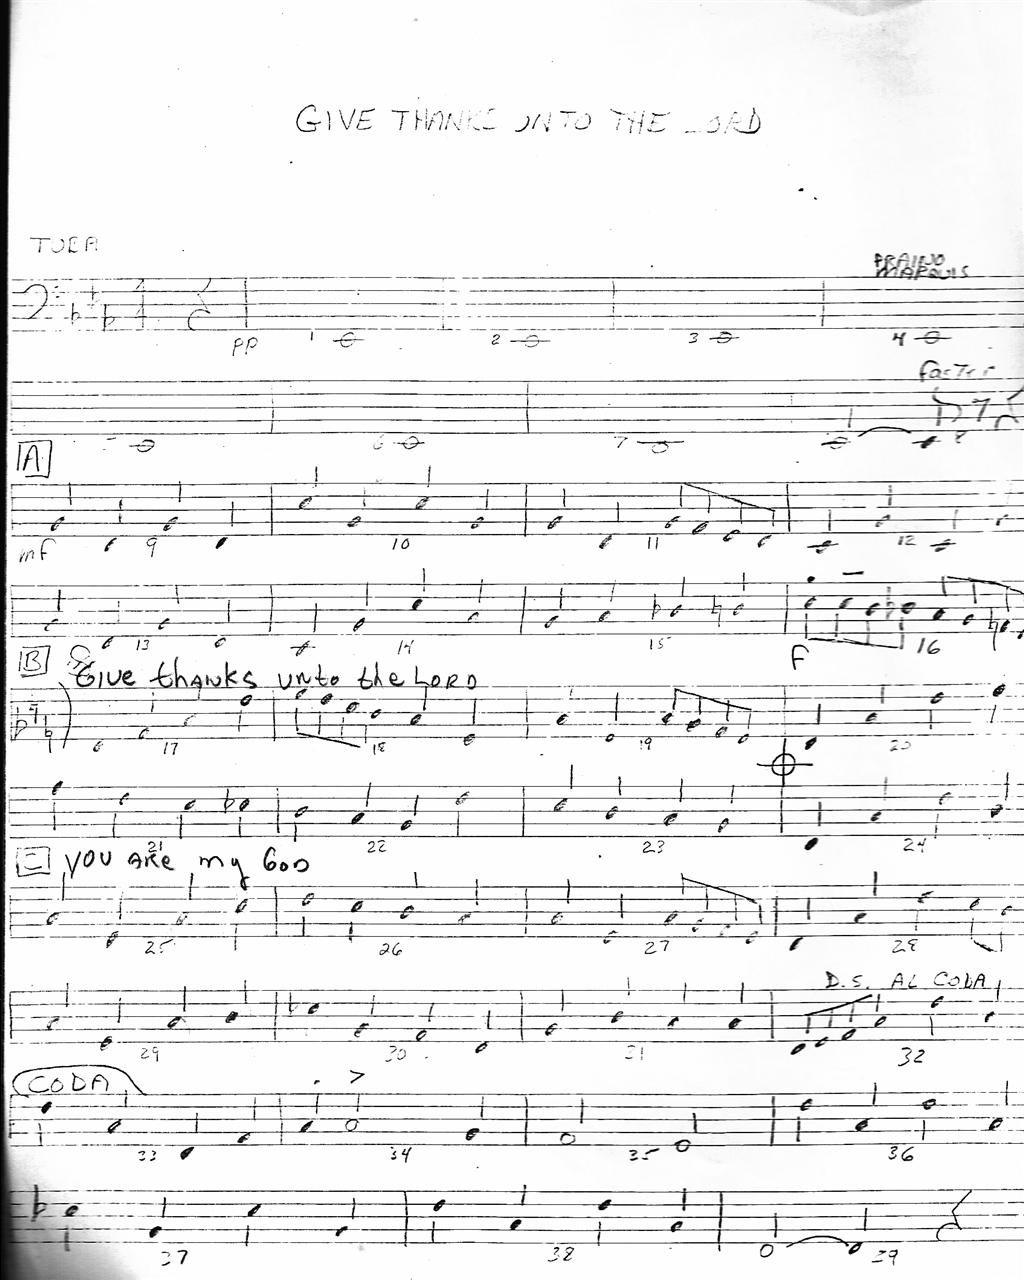 GIVE THANKS UNTO THE LORD
TUBA
PRAINO
MARQUIS
pp 1 2 3 4
faster
5 6 7 8
A
mf 9 10 11 12
13 14 15 16
F
B
Give thanks unto the LORD
17 18 19 20
21 22 23 24
YOU ARE my GOD
25 26 27 28
D.S. AL CODA
29 30 31 32
CODA
33 34 35 36
37 38 39